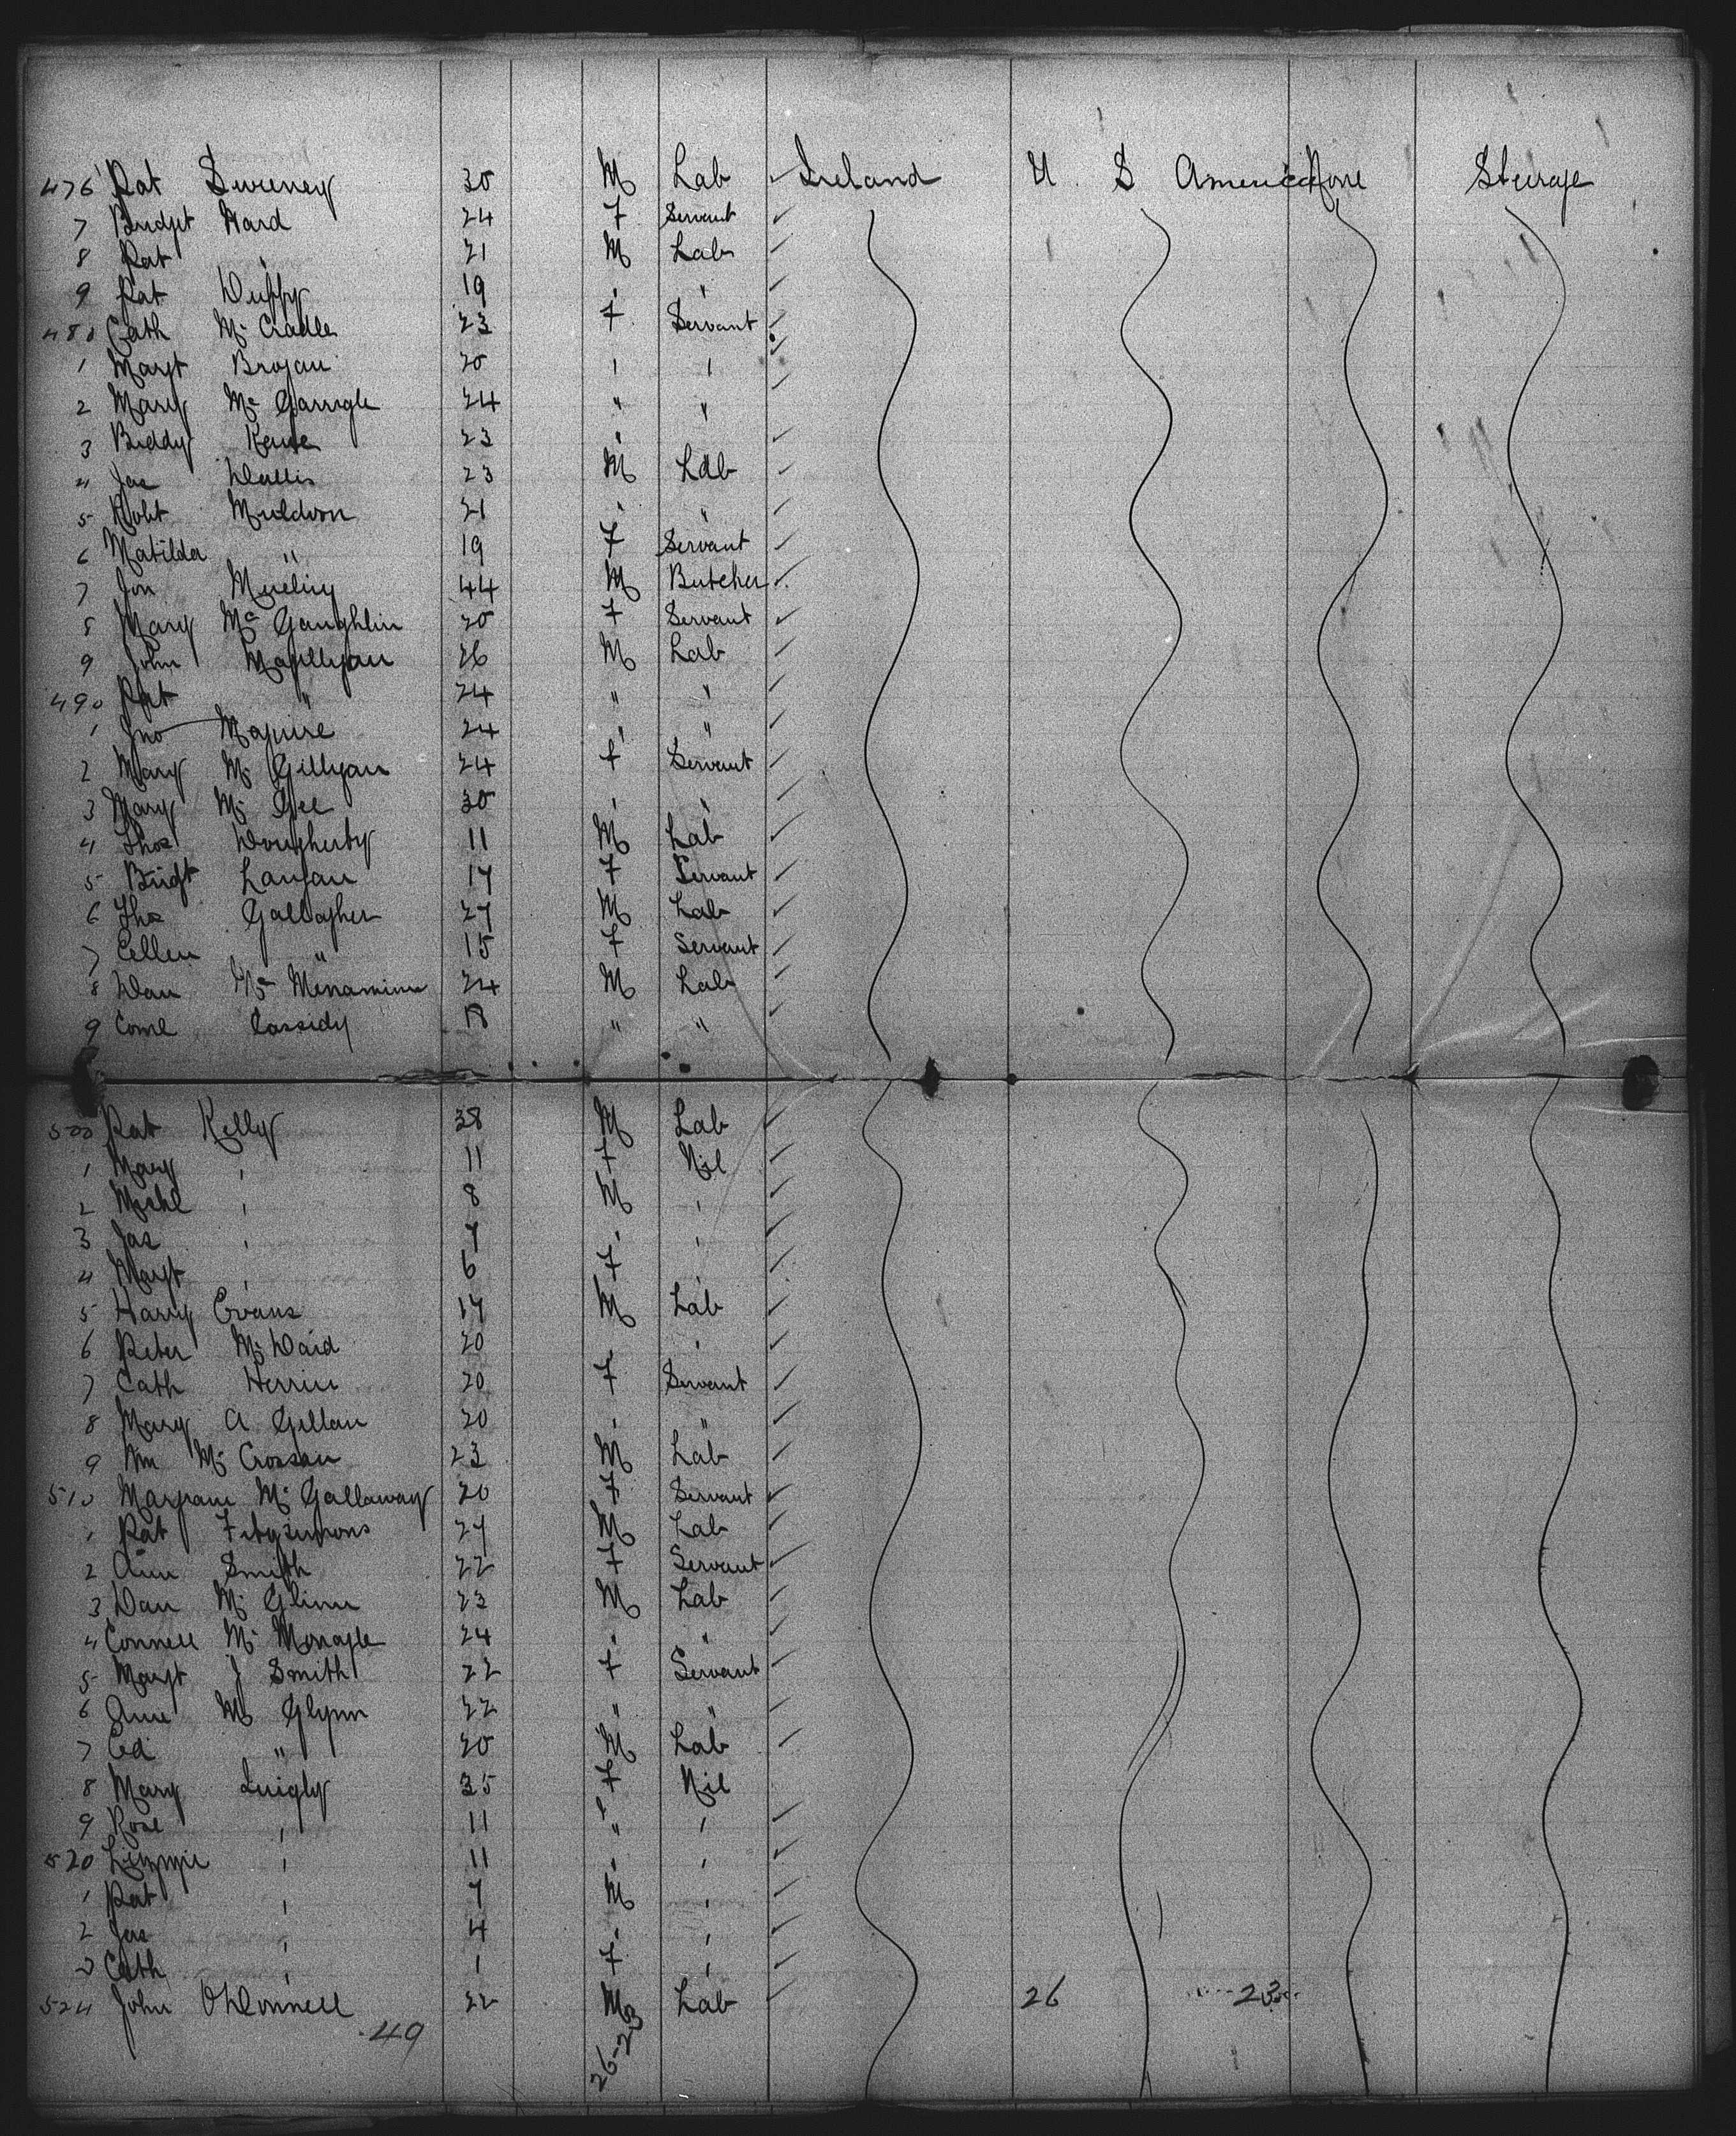 476 Pat Sweeney 30 M Lab Ireland U S America None Steerage
7 Bridget Ward 24 F Servant
8 Pat " 21 M Lab
9 Pat Duffy 19 " "
480 Cath Mc Cradle 23 F Servant
1 Margt Brogan 20 " "
2 Mary Mc Garrigle 24 " "
3 Biddy 23 "
4 Jas 23 M Lab
5 Robt Muldoon 21 " "
6 Matilda " 19 F Servant
7 Jon 44 M Butcher
8 Mary Mc Gaughlin 20 F Servant
9 John Magillgan 26 M Lab
490 Pat " 24 " "
1 Jno Maguire 24 " "
2 Mary Mc Gillgan 24 F Servant
3 Mary Mc Gee 30 " "
4 Thos Dougherty 11 M Lab
5 Bridgt Langan 17 F Servant
6 Thos Gallagher 27 M Lab
7 Ellen " 15 F Servant
8 Dan Mc Menamin 24 M Lab
9 Corml Cassidy 18 " "
500 Pat Kelly 38 M Lab
1 Mary " 11 F Nil
2 Michl " 8 M "
3 Jas " 7 " "
4 Margt " 6 F "
5 Harry Evans 17 M Lab
6 Peter Mc Daid 20 "
7 Cath Herrin 20 F Servant
8 Mary A Gillan 20 " "
9 Wm Mc Crossan 23 M Lab
510 Mc Gallaway 20 F Servant
1 Pat Fitzsimons 27 M Lab
2 Ann Smith 22 F Servant
3 Dan Mc Glinn 23 M Lab
4 Connell Mc Monagle 24 " "
5 Margt J Smith 22 F Servant
6 Ann Mc Glynn 22 " "
7 Ed " 20 M Lab
8 Mary Quigly 35 F Nil
9 Rose " 11 " "
520 Lizzie " 11 " "
1 Pat " 7 M "
2 Jas " 4 " "
3 Cath " 1 F "
524 John O'Donnell 22 M Lab 26 23
49 26-23